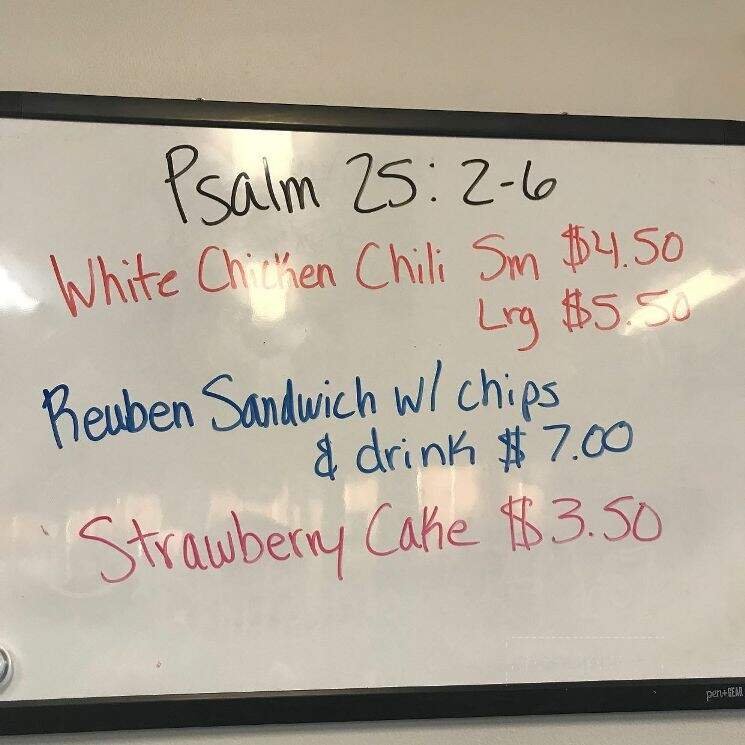 Psalm 25: 2-6
White Chicken Chili Sm $4.50
Lrg $5.50
Reuben Sandwich w/ chips
& drink $7.00
Strawberry Cake $3.50
pen+GEAR